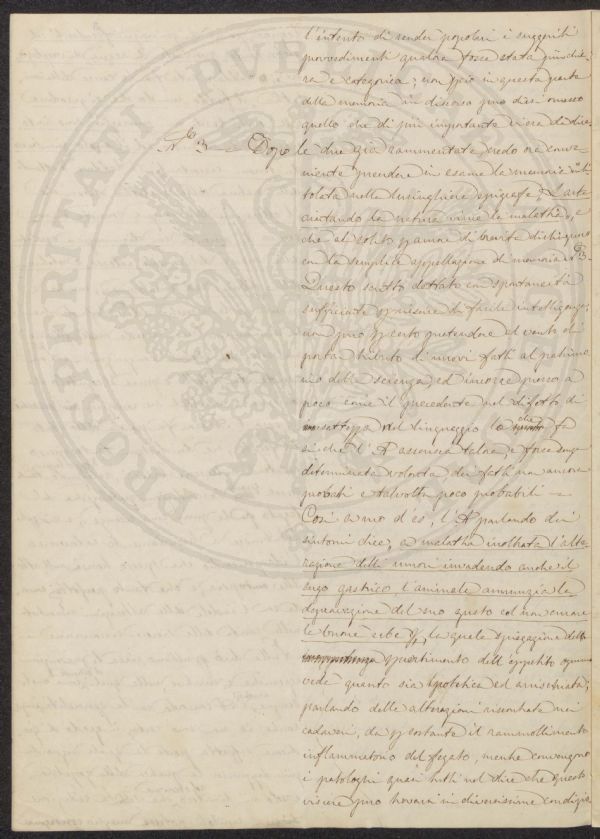 l'intento di render popolari i suggeriti
provvedimenti qualora fosse stata più
ra e categorica; non però in questa parte
della memoria in discorso può dirsi
quello che di più importante v'era di dire
N.° 3 — Dopo le due già rammentate, credo ora conve-
niente prendere in esame la memoria inti-
tolata nella lusinghiera epigrafe, L'arte
aiutando la natura vince le malattie, e
che al solito per amore di brevità distinguerò
con la semplice appellazione di memoria N.° 3.
Questo scritto dettato con spontaneità
sufficiente per essere di facile intelligenza,
non può per certo pretendere il vanto di
portar tributo di nuovi fatti al patrimo
nio della scienza, ed incorre presso a
poco come il precedente nel difetto di
esattezza del linguaggio lo che fa
sì che l'A. asserisca talora, e forse senza
determinata volontà dei fatti non ancora
provati e talvolta poco probabili —
Così a mo' d'es., l'A. parlando dei
sintomi dice, a malattia inoltrata l'alte-
razione delli umori invadendo anche il
sugo gastrico l'animale annunzia la
depravazione del suo gusto col non curare
le buone erbe &, la quale spiegazione della
pervertimento dell'appetito ognuno
vede quanto sia ipotetica ed arrischiata;
parlando delle alterazioni riscontrate nei
cadaveri, dà per costante il rammollimento
infiammatorio del fegato, mentre convengono
i patologhi quasi tutti nel dire che questo
viscere può trovarsi in diversissime condizio